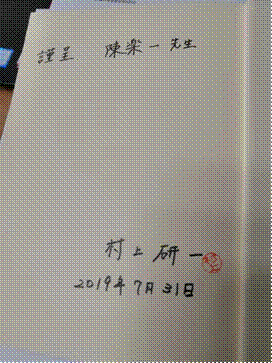 謹呈 陳楽一先生
村上研一
2019年7月31日